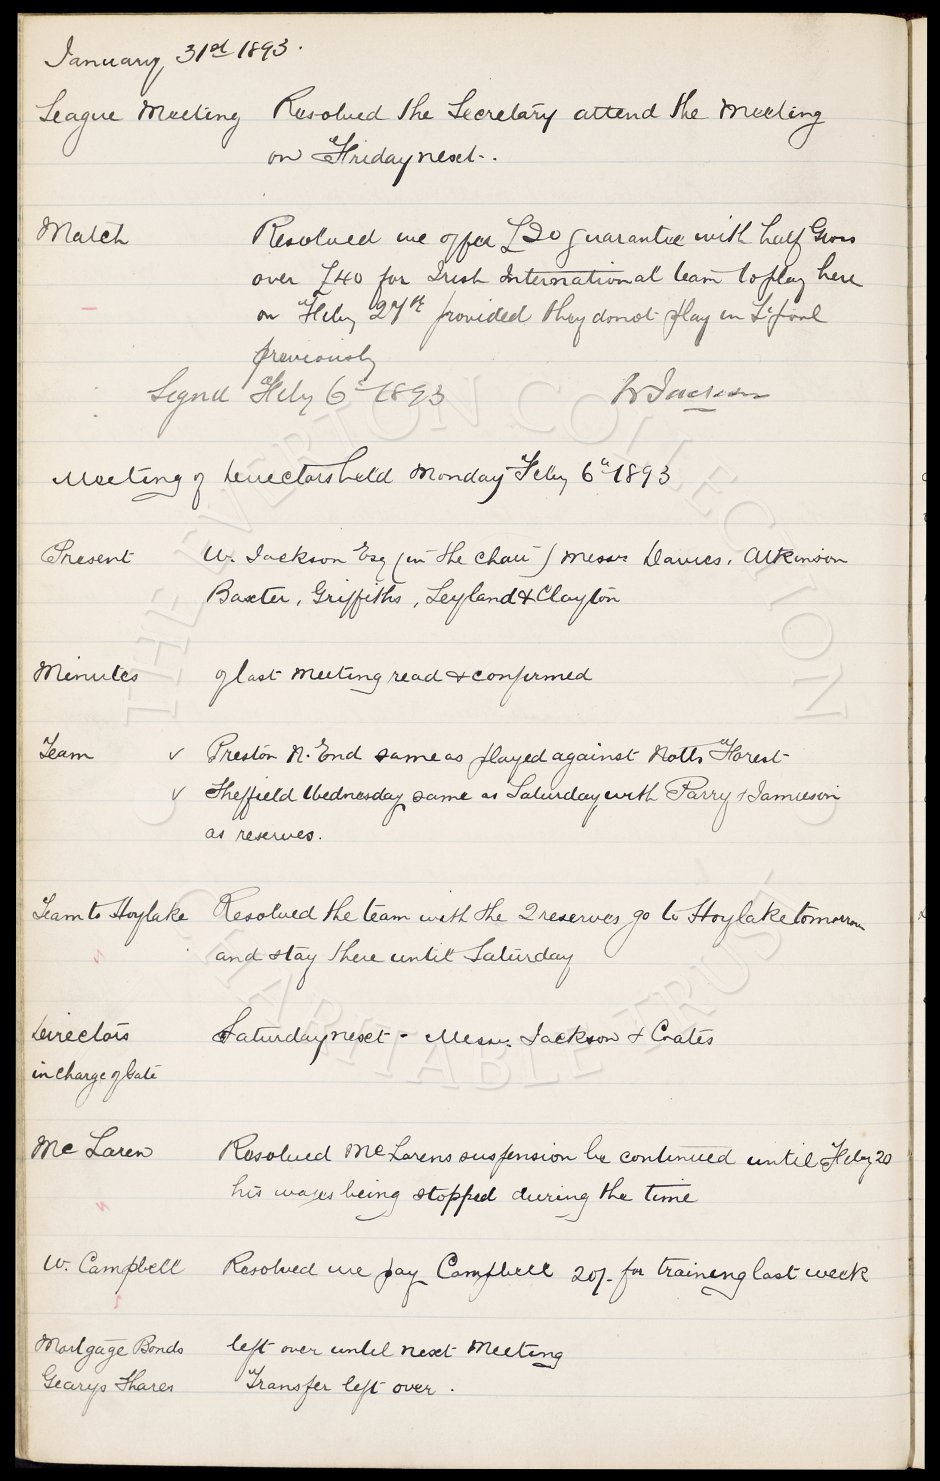 January 31st 1893.
League Meeting Resolved the Secretary attend the Meeting
on Friday next.
Match Resolved we offer £20 guarantee with half Gross
over £40 for Irish International team to play here
on Feby 27th provided they do not play in L'pool
previously
Signd Feby 6th 1893 W Jackson
Meeting of Directors held Monday Feby 6th 1893
Present W. Jackson Esq (in the chair) Messrs Davies, Atkinson
Baxter, Griffiths, Leyland & Clayton
Minutes of last meeting read & confirmed
Team v Preston N. End same as played against Notts Forest
v Sheffield Wednesday same as Saturday with Parry & Jamieson
as reserves.
Team to Hoylake Resolved the team with the 2 reserves go to Hoylake tomorrow
and stay there until Saturday
Directors Saturday next - Messrs. Jackson & Coates
in charge of Gate
Mc Laren Resolved McLarens suspension be continued until Feby 20
his wages being stopped during the time
W. Campbell Resolved we pay Campbell 20/- for training last week
Mortgage Bonds left over until next Meeting
Gearys Shares Transfer left over.
THE EVERTON COLLECTION
CHARITABLE TRUST